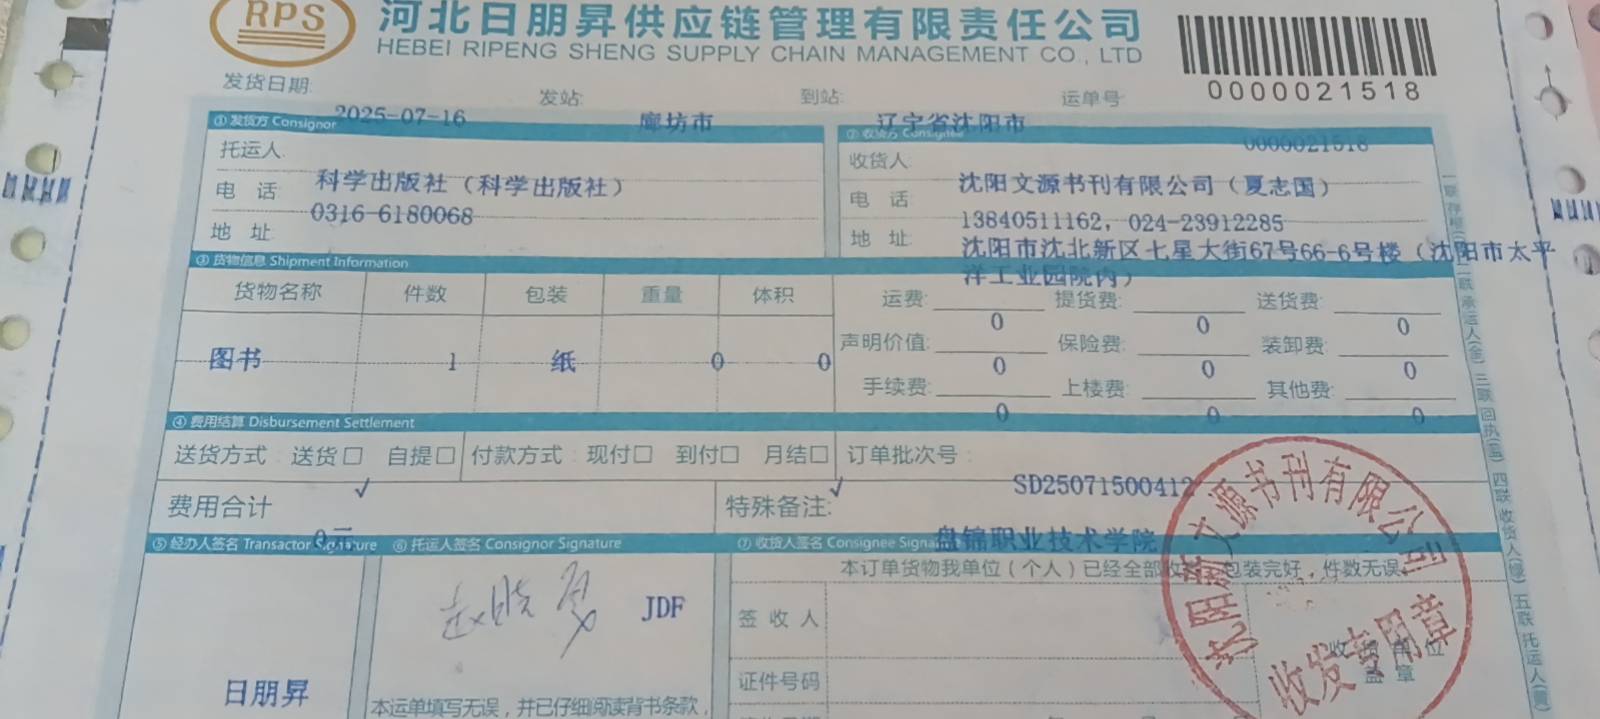 RPS
河北日朋昇供应链管理有限责任公司
HEBEI RIPENG SHENG SUPPLY CHAIN MANAGEMENT CO., LTD
0000021518
发货日期: 2025-07-16 发站: 廊坊市 到站: 辽宁省沈阳市 运单号: 0000021518
①发货方 Consignor ②收货方 Consignee
托运人: 科学出版社（科学出版社） 收货人: 沈阳文源书刊有限公司（夏志国）
电 话: 0316-6180068 电 话: 13840511162, 024-23912285
地 址: 地 址: 沈阳市沈北新区七星大街67号66-6号楼（沈阳市太平
洋工业园院内）
③货物信息 Shipment Information
货物名称 件数 包装 重量 体积 运费: 0 提货费: 0 送货费: 0
图书 1 纸 0 0 声明价值: 0 保险费: 0 装卸费: 0
手续费: 0 上楼费: 0 其他费: 0
④费用结算 Disbursement Settlement
送货方式: 送货□ 自提□ 付款方式: 现付□ 到付□ 月结□ 订单批次号: SD25071500412
✓ ✓
费用合计 0元 特殊备注: 盘锦职业技术学院
⑤经办人签名 Transactor Signature ⑥托运人签名 Consignor Signature ⑦收货人签名 Consignee Signa
本订单货物我单位（个人）已经全部收 包装完好，件数无误。
赵晓勇 JDF
签 收 人 收货单位
盖 章
证件号码
日朋昇
本运单填写无误，并已仔细阅读背书条款，
沈阳市文源书刊有限公司
收发专用章